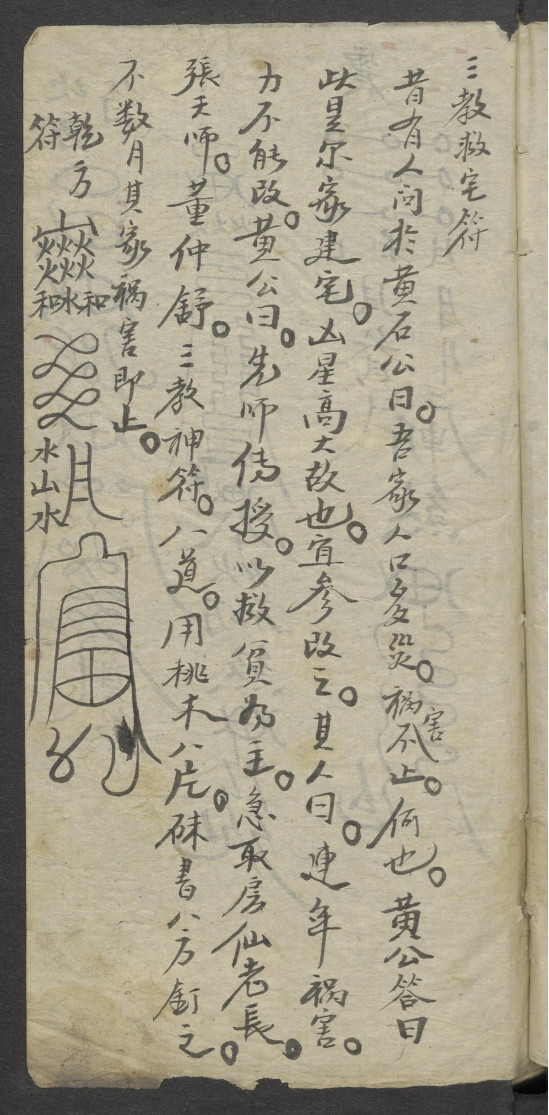 三教救宅符
昔有人问於黄石公曰。吾家人口多災。祸害不止。何也。黄公答曰
此是尔家建宅。凶星高大故也。宜參改之。其人曰。連年祸害。
力不能改。黄公曰。先师傳授。以救貧為主。急取房仙老長。
張天师。董仲舒。三教神符。八道。用桃木八片。硃書八方釘之。
不数月其家祸害即止。
乾方符
火火火火火火
和水和
水山水